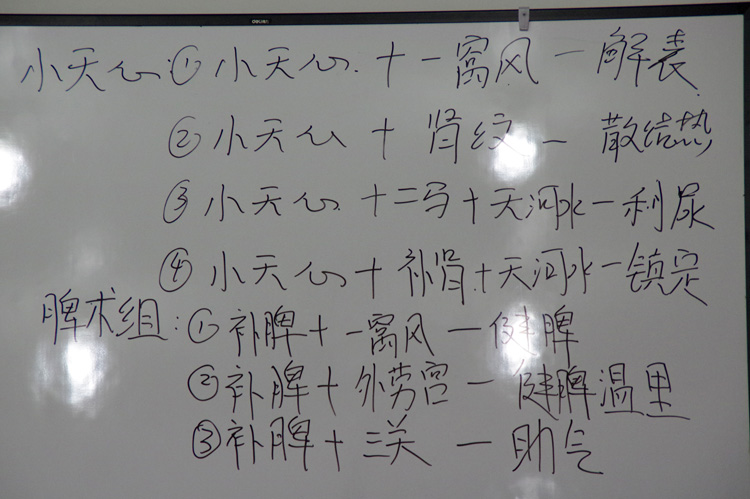 DELI
小天心:①小天心.+一窝风—解表
②小天心+肾纹—散结热
③小天心.+二马+天河水—利尿
④小天心+补肾+天河水—镇定
脾术组:①补脾+一窝风—健脾
②补脾+外劳宫—健脾温里
③补脾+三关—助气